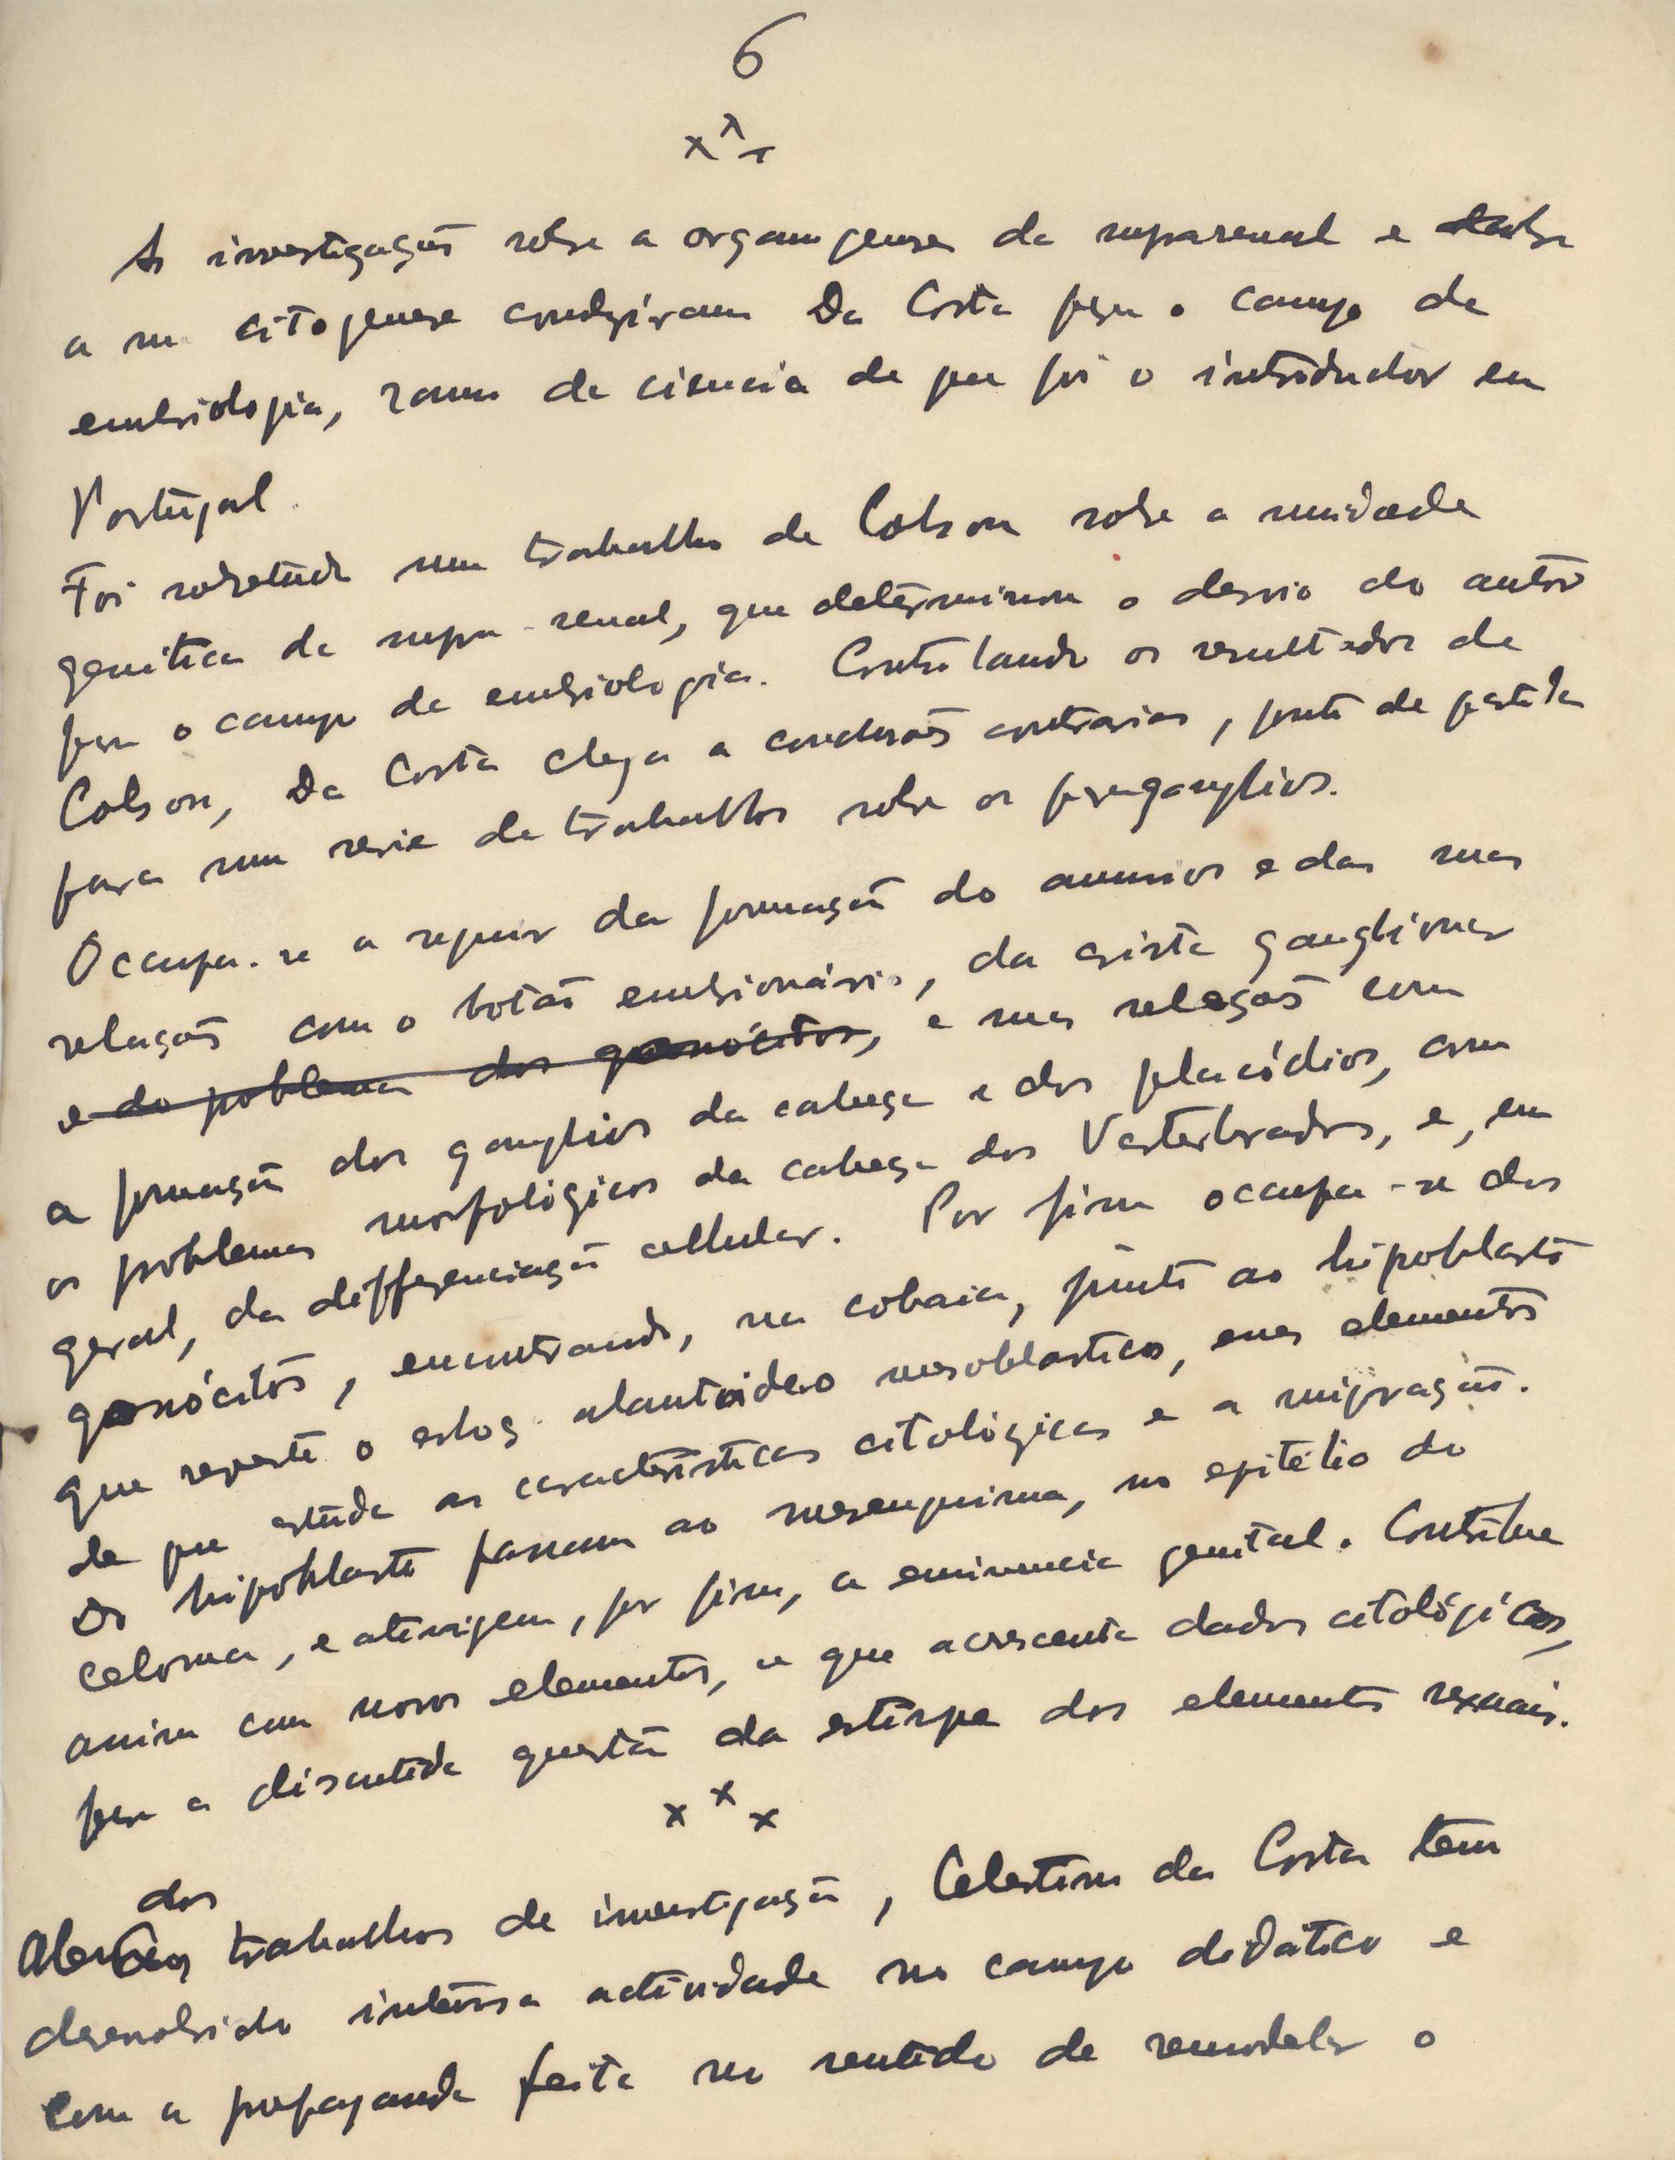 6
x x x
As investigações sobre a organogenese da suparenal e sobre
a sua citogenese conduziram Da Costa para o campo da
embriologia, ramo da ciencia de que foi o introductor em
Portugal.
Foi sobretudo um trabalho de Colson sobre a unidade
genitica da supra-renal, que determinou o desvio do autor
para o campo da embriologia. Controlando os resultados de
Colson, Da Costa chega a conclusões contrarias, ponto de partida
para uma serie de trabalhos sobre os paraganglios.
Occupa-se a seguir da formação do amnios e das suas
relações com o botão embrionário, da crista ganglionar
e do problema dos gonócitos, e suas relações com
a formação dos ganglios da cabeça e dos placódios, com
os problemas morfológicos da cabeça dos Vertebrados, e, em
geral, da differenciação cellular. Por fim occupa-se dos
gonócitos, encontrando, na cobaia, junto ao hipoblasto
que reveste o esboç. alantoideo mesoblastico, esses elementos
de que estuda as caracteristicas citológicas e a migração.
Do hipoblasto passam ao mesenquima, no epitélio do
celoma, e atingem, por fim, a eminencia genital. Contribue
assim com novos elementos, a que acrescenta dados citológicos,
para a discutida questão da estirpe dos elementos sexuais.
x x x
dos
Alem trabalhos de investigação, Celestino da Costa tem
desenvolvido intensa actividade no campo didático e
com a propaganda feita no sentido de remodelar o